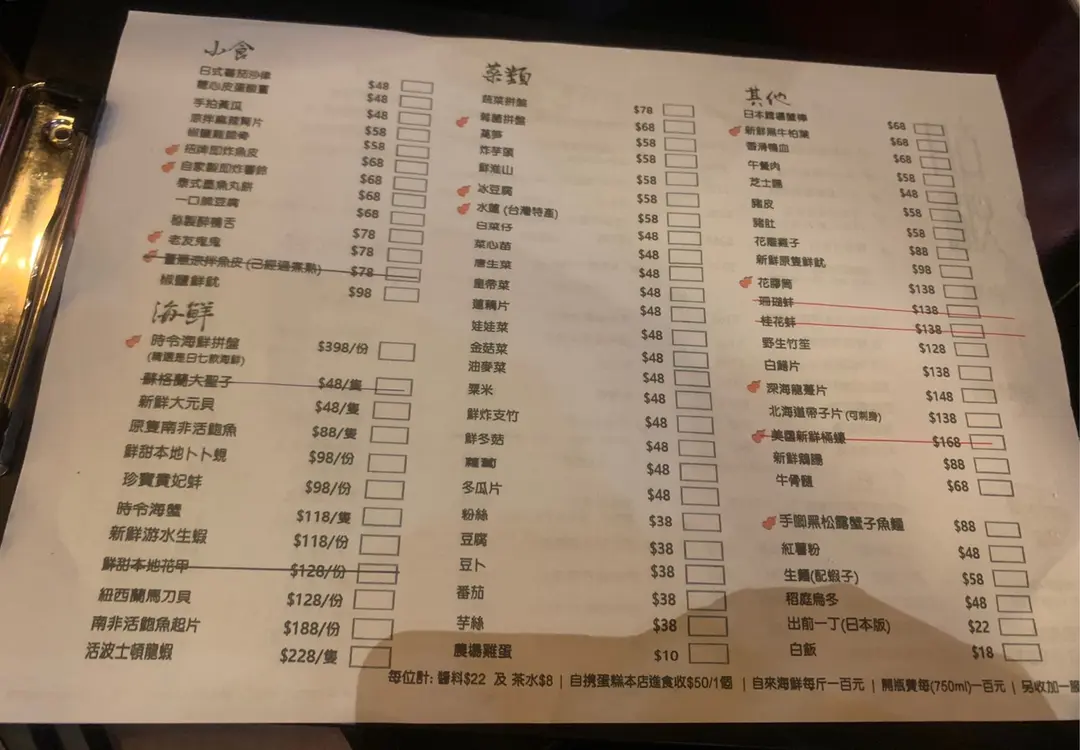 小食
日式番茄沙律 $48
糖心皮蛋酸薑 $48
手拍黃瓜 $48
涼拌麻辣腎片 $58
椒鹽雞軟骨 $58
招牌即炸魚皮 $68
自家製即炸響鈴 $68
泰式墨魚丸餅 $68
一口脆豆腐 $68
秘製醉鴨舌 $78
老友鬼鬼 $78
涼拌魚皮 (已經過煮熟) $78
椒鹽鮮魷 $98
海鮮
時令海鮮拼盤 $398/份
(精選是日七款海鮮)
蘇格蘭大聖子 $48/隻
新鮮大元貝 $48/隻
原隻南非活鮑魚 $88/隻
鮮甜本地卜卜蜆 $98/份
珍寶貴妃蚌 $98/份
時令海蟹 $118/隻
新鮮游水生蝦 $118/份
鮮甜本地花甲 $128/份
紐西蘭馬刀貝 $128/份
南非活鮑魚起片 $188/份
活波士頓龍蝦 $228/隻
菜類
蔬菜拼盤 $78
韓菌拼盤 $68
萵笋 $58
炸芋蛋 $58
鮮淮山 $58
冰豆腐 $58
水蓮 (台灣特產) $58
白菜仔 $48
菜心苗 $48
唐生菜 $48
皇帝菜 $48
蓮藕片 $48
娃娃菜 $48
金菇菜 $48
油麥菜 $48
粟米 $48
鮮炸支竹 $48
鮮冬菇 $48
蘿蔔 $48
冬瓜片 $48
粉絲 $38
豆腐 $38
豆卜 $38
番茄 $38
芋絲 $38
農場雞蛋 $10
其他
日本鱈場蟹棒 $68
新鮮黑牛柏葉 $68
香滑鴨血 $68
午餐肉 $58
芝士腸 $48
豬皮 $58
豬肚 $58
花雕雞子 $88
新鮮原隻鮮魷 $98
花膠筒 $138
珊瑚蚌 $138
桂花蚌 $138
野生竹笙 $128
白鱔片 $138
深海龍躉片 $148
北海道帶子片 (可刺身) $138
美國新鮮桶蠔 $168
新鮮鵝腸 $88
牛骨髓 $68
手唧黑松露蟹子魚麵 $88
紅薯粉 $48
生麵(配蝦子) $58
稻庭烏冬 $48
出前一丁(日本版) $22
白飯 $18
每位計: 醬料$22 及 茶水$8 | 自携蛋糕本店進食收$50/1個 | 自來海鮮每斤一百元 | 開瓶費每(750ml)一百元 | 另收加一服